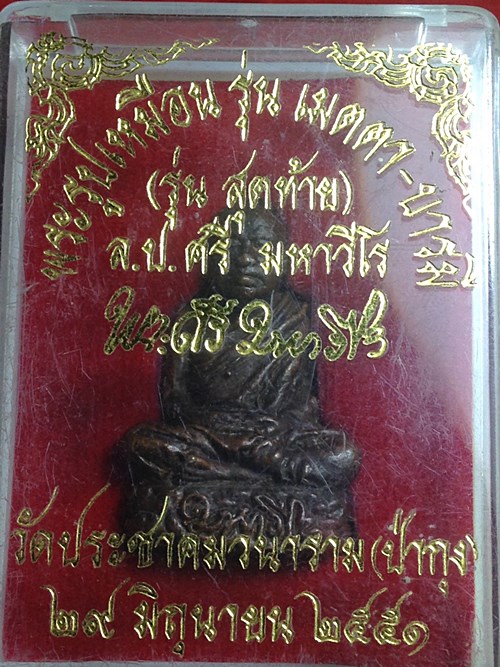 พระรูปเหมือน รุ่น เมตตา-บารมี
(รุ่น สุดท้าย)
ล.ป. ศรี มหาวีโร
วัดประชาคมวนาราม (ป่ากุง)
๒๙ มิถุนายน ๒๕๕๑